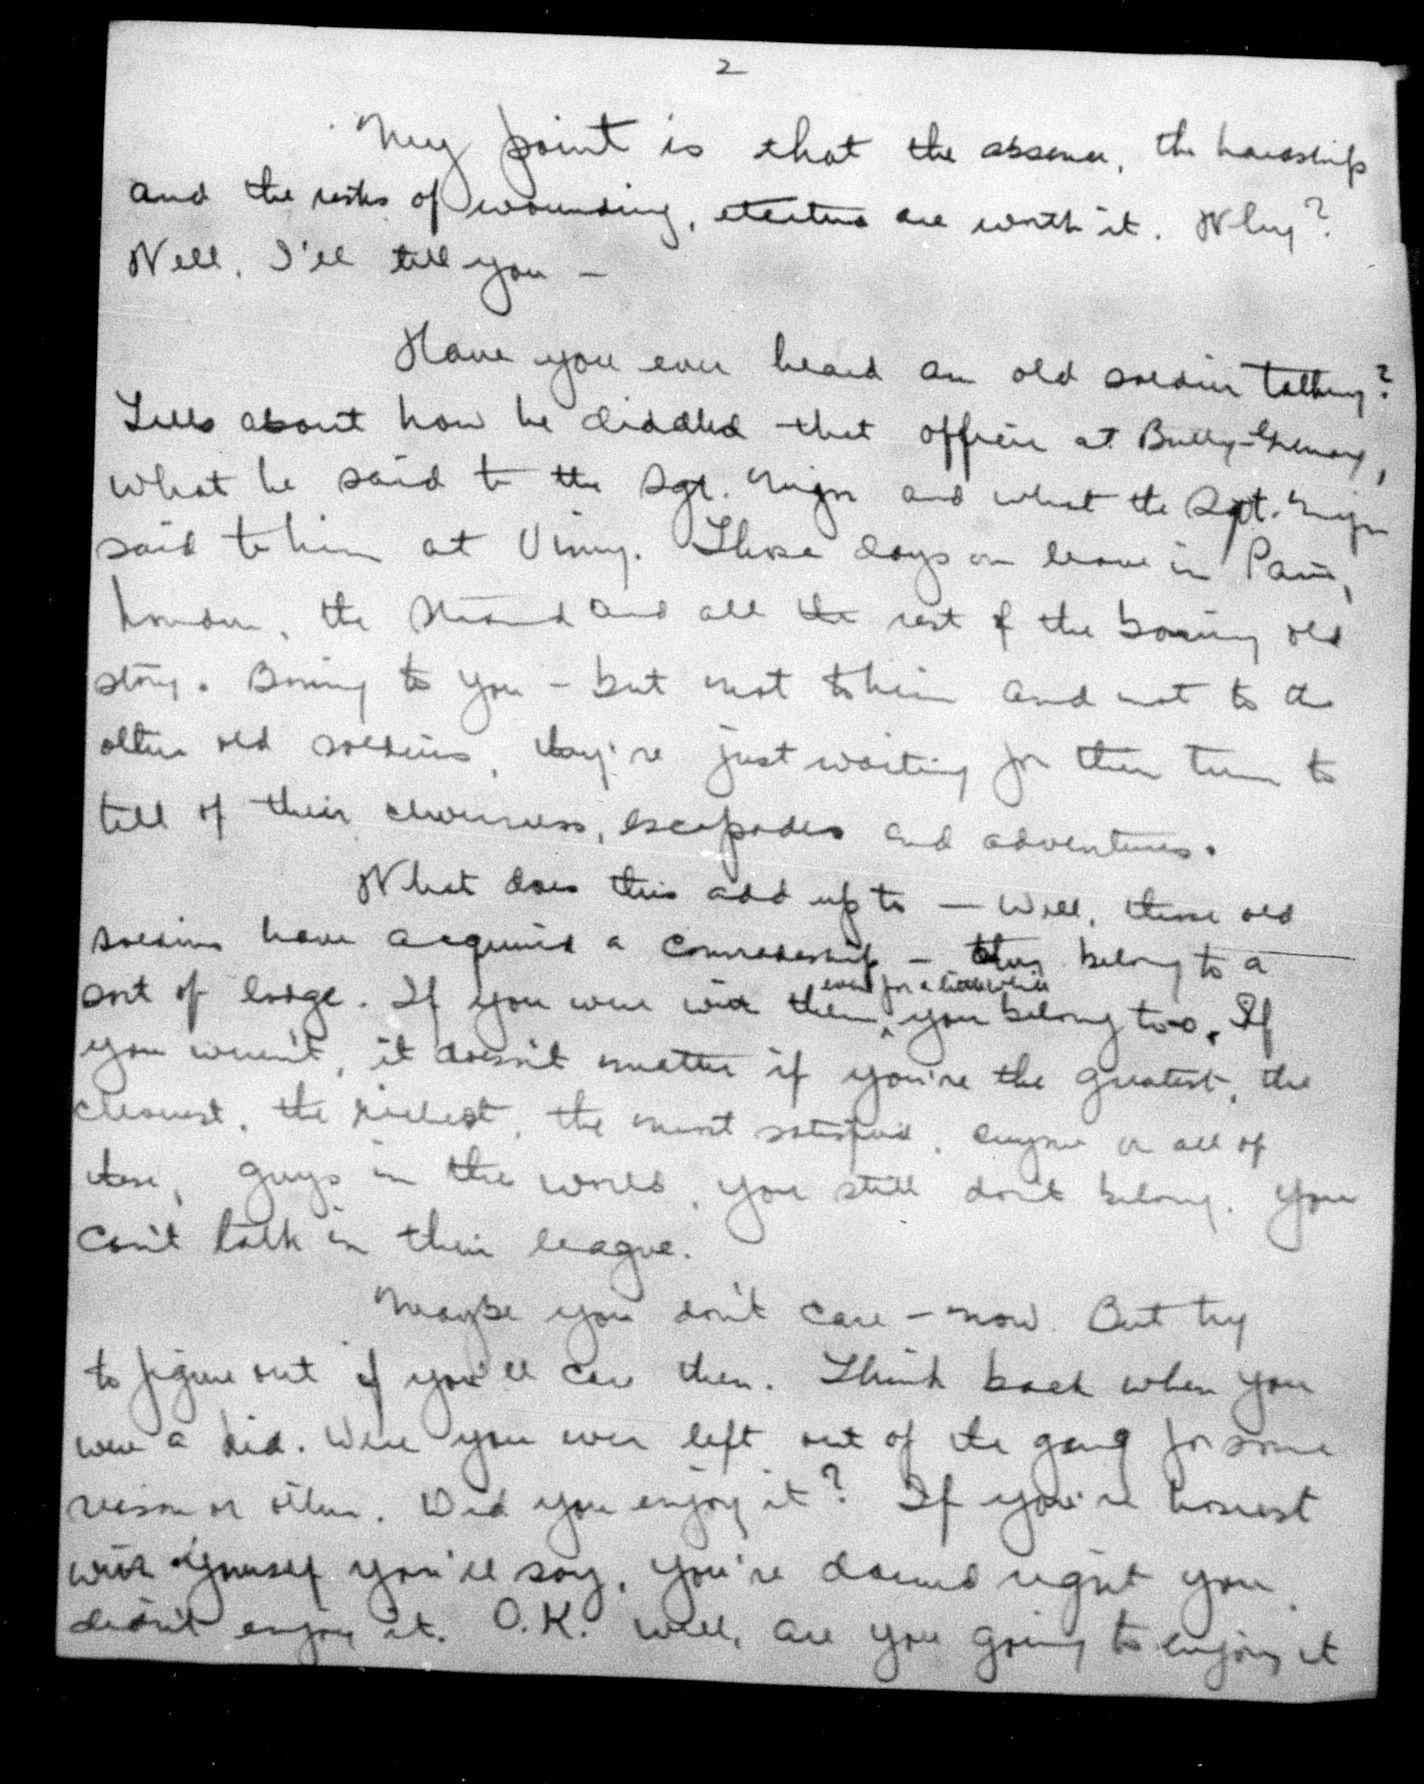 2
My point is that the absence, the hardship
and the risks of wounding, etcetera are worth it. Why?
Well, I'll tell you –
Have you ever heard an old soldier talking?
Tells about how he diddled that officer at Bully-Grenay,
what he said to the Sgt. Major and what the Sgt. Major
said to him at Vimy. Those days on leave in Paris,
London, the Strand and all the rest of the boring old
story. Boring to you – but not to him and not to the
other old soldiers, they're just waiting for their turn to
tell of their cleverness, escapades and adventures.
What does this add up to – Well, these old
soldiers have acquired a comradeship – they belong to a
sort of lodge. If you were with them even for a little while, you belong too. If
you weren't, it doesn't matter if you're the greatest, the
cleverest, the richest, the most satisfied, anyone or all of
these, guys in the world, you still don't belong. You
can't talk in their league.
Maybe you don't care – now. But try
to figure out if you'll care then. Think back when you
were a kid. Were you ever left out of the gang for some
reason or other. Did you enjoy it? If you're honest
with yourself you'll say, you're darned right you
didn't enjoy it. O.K. Well, are you going to enjoy it